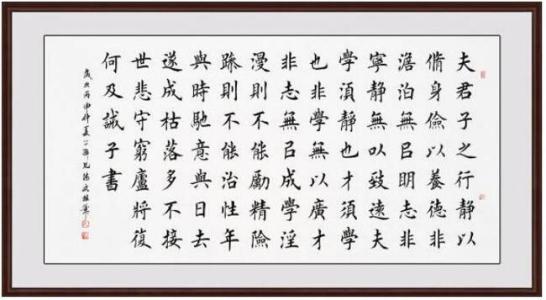 夫君子之行靜以
脩身儉以養德非
澹泊無㠯明志非
寧靜無以致遠夫
學須靜也才須學
也非學無以廣才
非志無㠯成學淫
漫則不能勵精險
躁則不能治性年
與時馳意與日去
遂成枯落多不接
世悲守窮廬將復
何及誡子書
歲次丙申仲夏